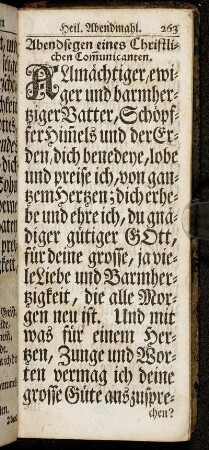 Heil. Abendmahl. 263
Abendsegen eines Christli-
chen Com̃unicanten.
ALlmächtiger, ewi-
ger und barmher-
tziger Vatter, Schöpf-
fer Him̃els und der Er-
den, dich benedeye, lobe
und preise ich, von gan-
tzem Hertzen; dich erhe-
be und ehre ich, du gnä-
diger gütiger GOtt,
für deine grosse, ja vie-
le Liebe und Barmher-
tzigkeit, die alle Mor-
gen neu ist. Und mit
was für einem Her-
tzen, Zunge und Wor-
ten vermag ich deine
grosse Güte auszuspre-
chen?